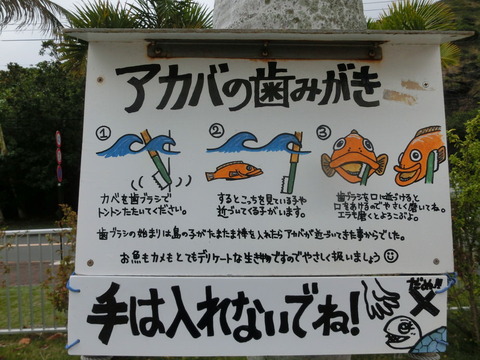 アカバの歯みがき
①
カベを歯ブラシで
トントンたたいてください。
②
するとこっちを見ている子や
近づいてくる子がいます。
③
歯ブラシを口に近づけると
口をあけるのでやさしく磨いてね。
エラも磨くとよろこぶよ。
歯ブラシの始まりは島の子がたまたま棒を入れたらアカバが近づいてきた事からでした。
お魚もカメもとてもデリケートな生き物ですのでやさしく扱いましょう
手は入れないでね!
だめよ!!